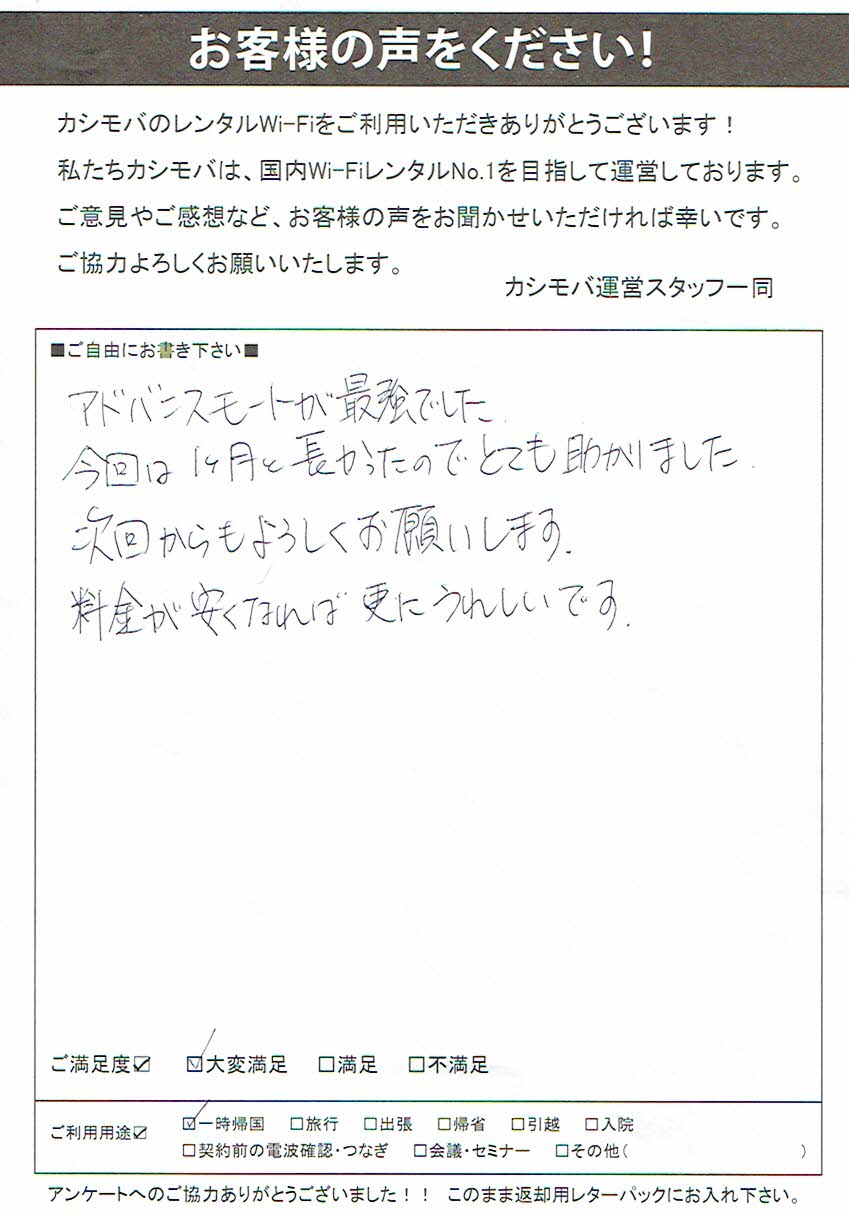 お客様の声をください!
カシモバのレンタルWi-Fiをご利用いただきありがとうございます！
私たちカシモバは、国内Wi-FiレンタルNo.1を目指して運営しております。
ご意見やご感想など、お客様の声をお聞かせいただければ幸いです。
ご協力よろしくお願いいたします。
カシモバ運営スタッフ一同
■ご自由にお書き下さい■
アドバンスモートが最強でした.
今回は1ヶ月と長かったのでとても助かりました.
次回からもよろしくお願いします.
料金が安くなれば更にうれしいです.
ご満足度☑ ☑大変満足 □満足 □不満足
ご利用用途☑ ☑一時帰国 □旅行 □出張 □帰省 □引越 □入院
□契約前の電波確認・つなぎ □会議・セミナー □その他( )
アンケートへのご協力ありがとうございました！！ このまま返却用レターパックにお入れ下さい。